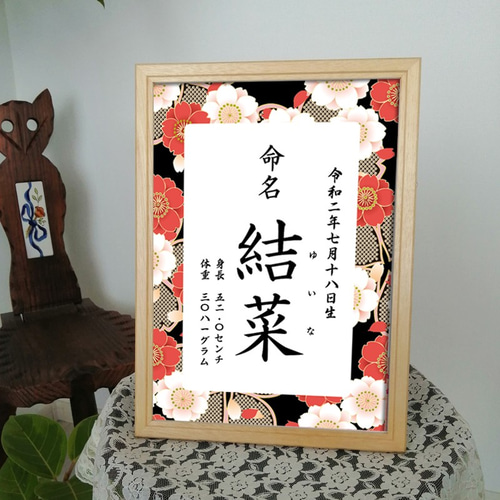 令和二年七月十八日生
命名
結菜
ゆいな
身長 五二.〇センチ
体重 三〇八一グラム